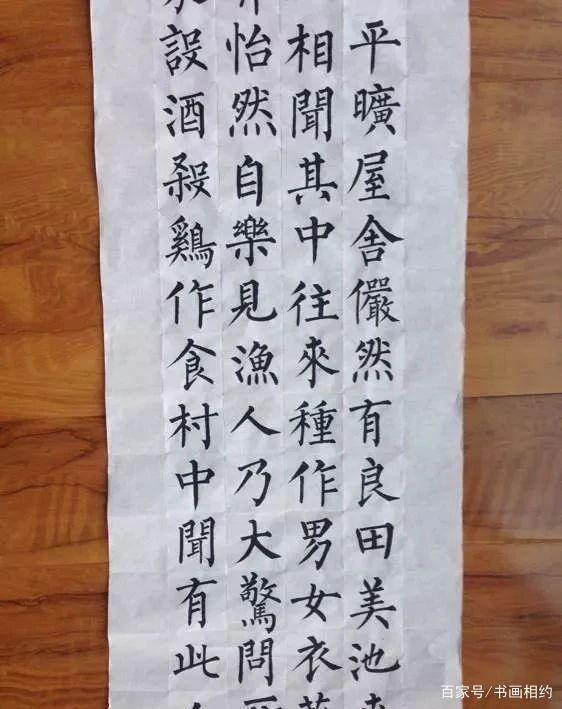 平曠屋舍儼然有良田美池
相聞其中往來種作男女衣
怡然自樂見漁人乃大驚問
設酒殺鷄作食村中聞有此
百家号/书画相约